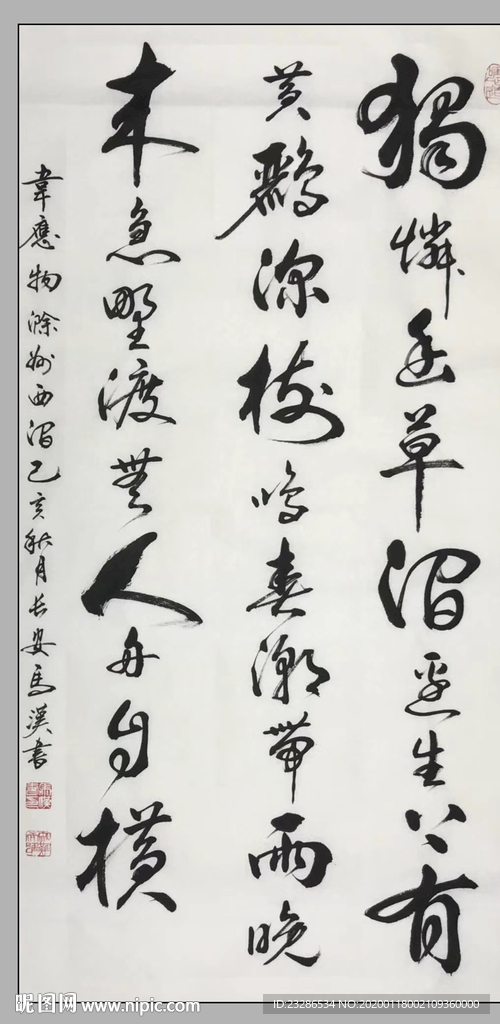 獨憐幽草澗邊生上有
黄鸝深樹鳴春潮帶雨晚
来急野渡無人舟自橫
韋應物滁州西澗己亥秋月長安馬漢書
昵图网 www.nipic.com
ID:23286534 NO:20200118002109360000